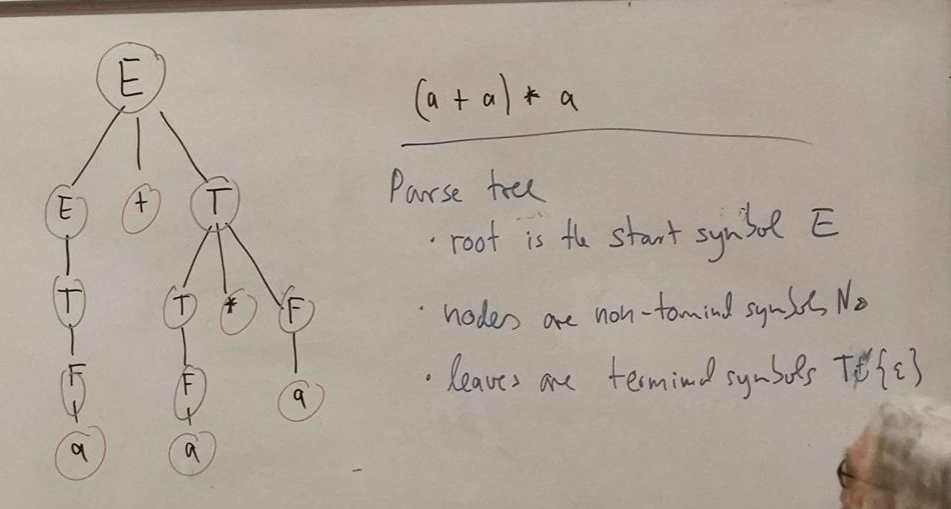 E
(a + a) * a
E + T
Parse tree
• root is the start symbol E
T T * F
• nodes are non-terminal symbols N
F F a
• leaves are terminal symbols T {ε}
a a